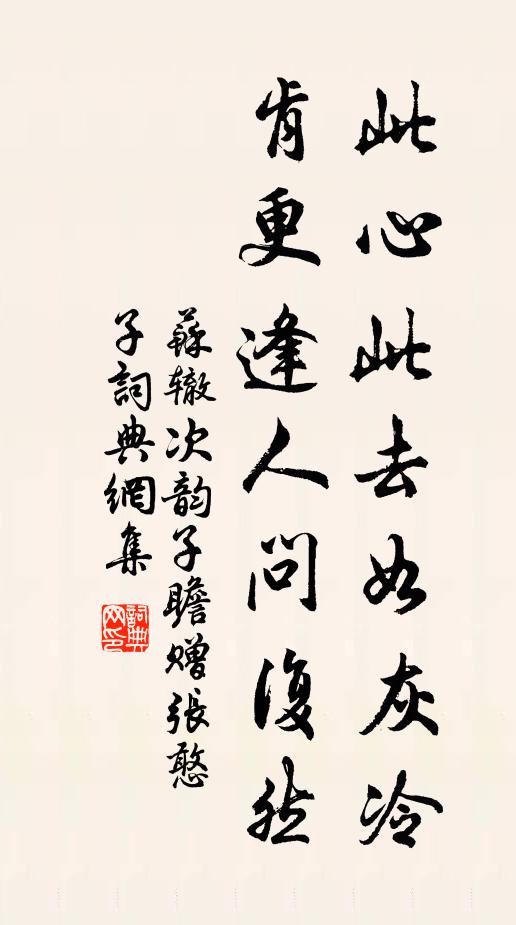 此心此去如灰冷
肯更逢人問復然
蘇辙次韵子瞻赠張憨
子詞典網集
詞典
网印